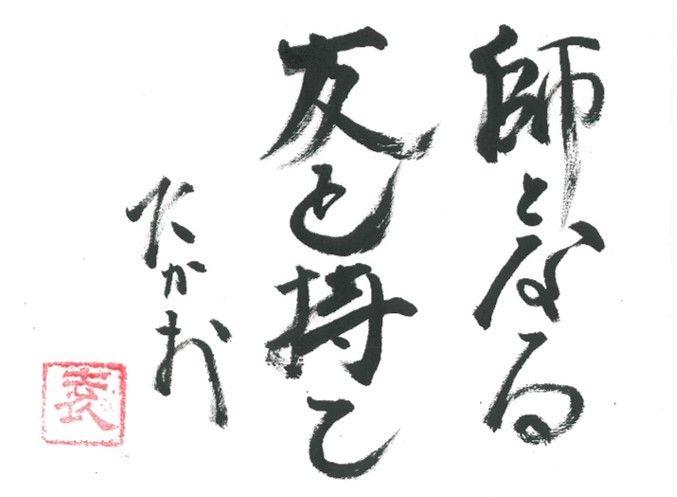 師となる
友を持て
たかお